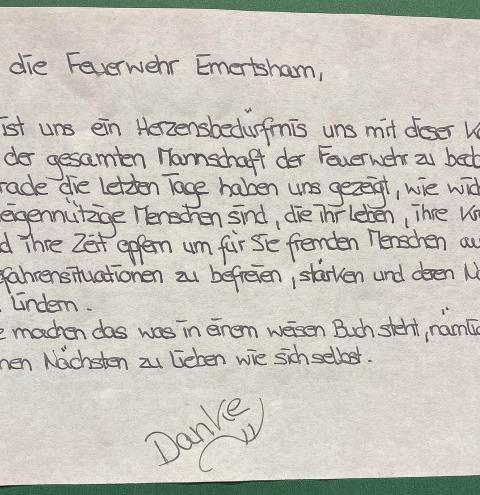 die Feuerwehr Emertsham,
ist uns ein Herzensbedürfmis uns mit dieser
der gesamten Mannschaft der Feuerwehr zu
die letzten Tage haben uns gezeigt, wie
eigennützige Menschen sind, die ihr leben, ihre
ihre Zeit opfern um für Sie fremden Menschen
fahrensituationen zu befreien, stärken und deren
Lindern.
machen das was in einem weisen Buch steht,
Nächsten zu lieben wie sich selbst.
Danke